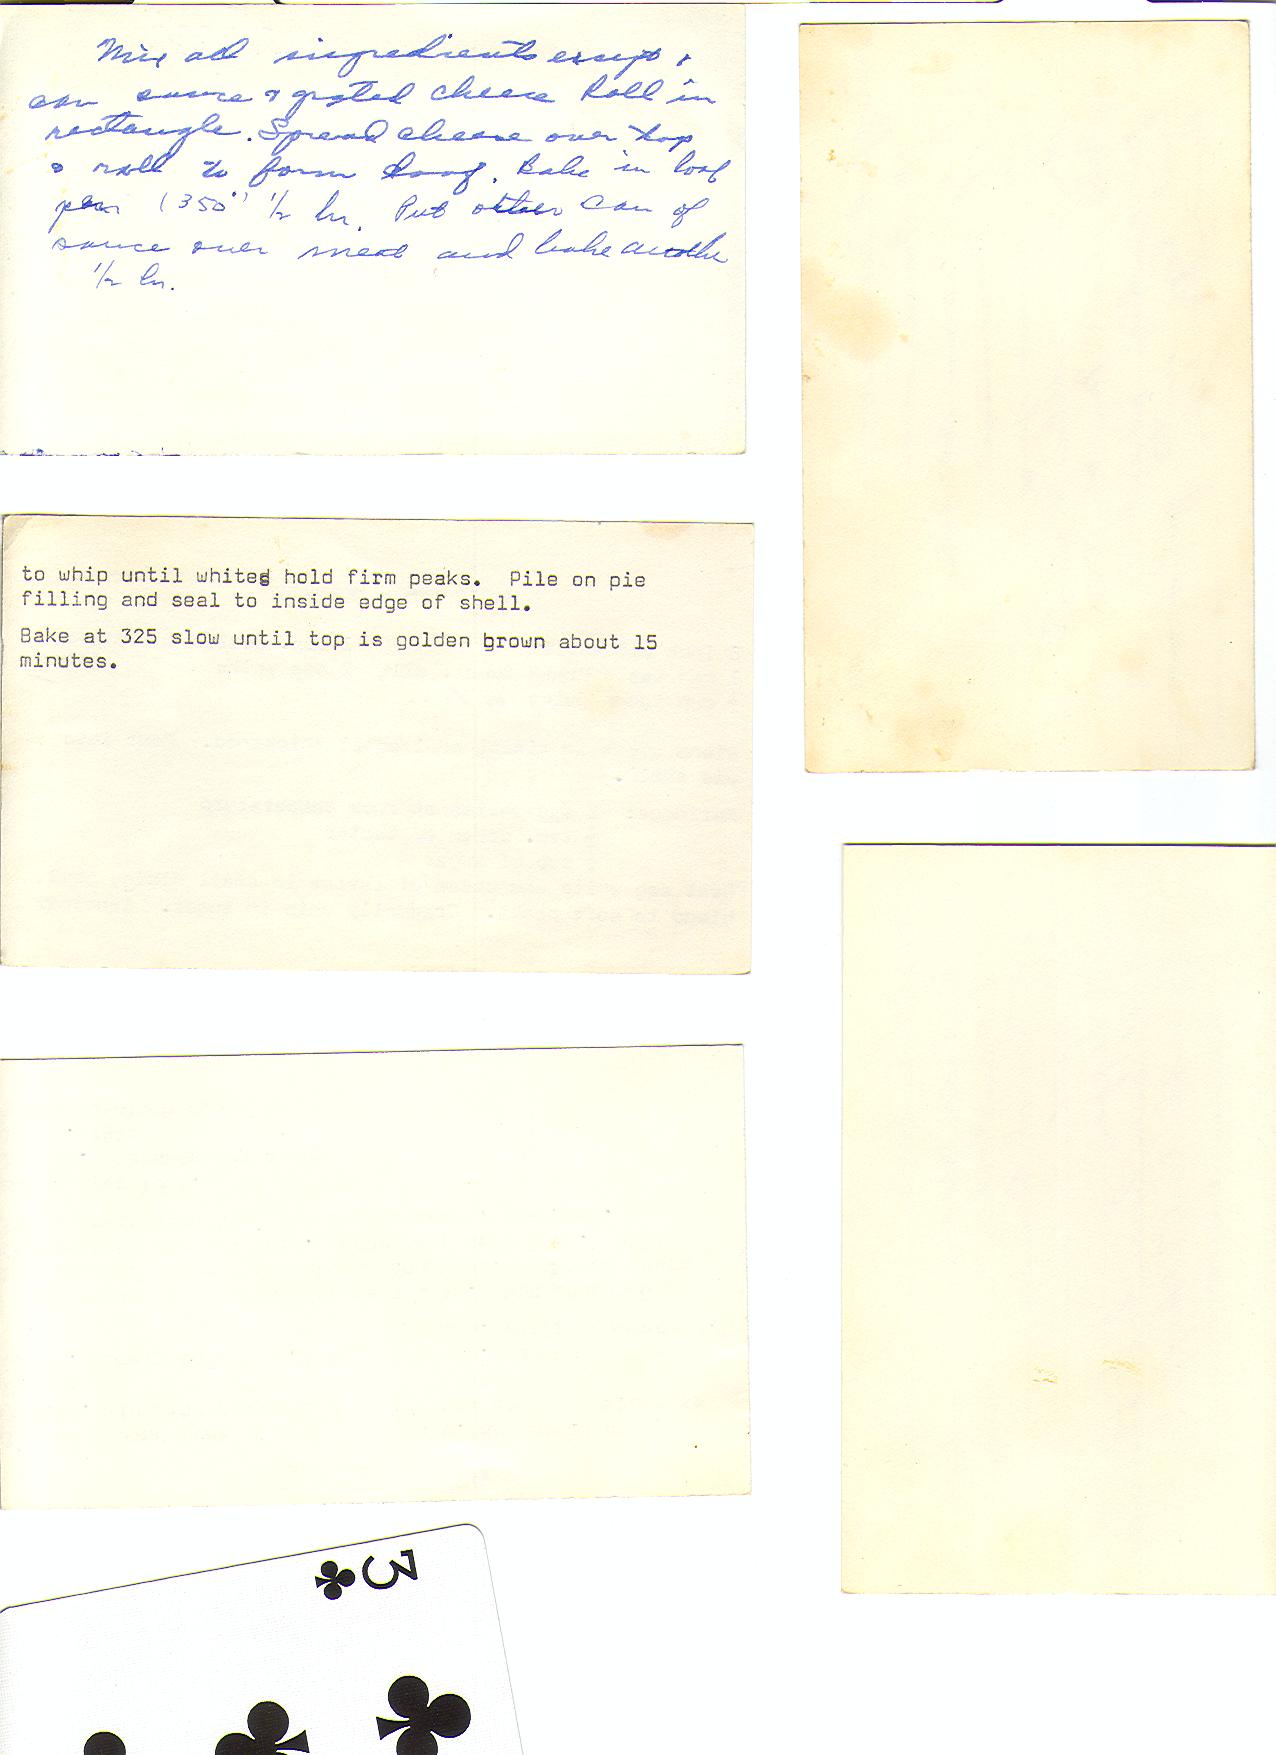 Mix all ingredients except 1
can sauce & grated cheese Roll in
rectangle. Spread cheese over top
& roll to form loaf. Bake in loaf
pan (350°) 1/2 hr. Put other can of
sauce over meat and bake another
1/2 hr.
to whip until whites hold firm peaks.  Pile on pie
filling and seal to inside edge of shell.
Bake at 325 slow until top is golden brown about 15
minutes.
3